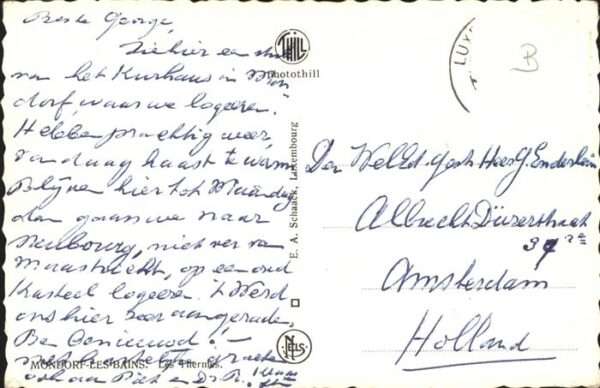 Beste George,
Ziehier een
van het Kurhaus in Mon
dorf, waar we logeeren.
Hebben prachtig weer,
vandaag haast te warm
Blijven hier tot Maandag
dan gaan we naar
Neubourg, niet ver van
Maastricht, op een oud
Kasteel logeeren. 't Werd
ons hier zeer aangeraden,
Ben benieuwd! -
met hartelijke groeten
ook van Piet en Dr. R.
MONDORF-LES-BAINS. Les Thermes.
THILL
Photothill
E. A. Schaack, Luxembourg
NELS
LUX
B
Den WelEd. Gestr. Heer G. Enderlein
Albrecht Dürerstraat
37
Amsterdam
Holland